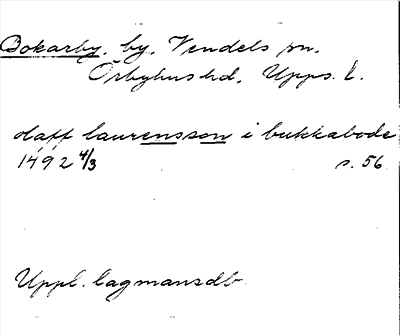 Bokarby, by, Vendels sn.
Örbyhus hd, Upps. l.
olaff laurensson i bukkabode
1492 4/3 s. 56
Uppl. lagmansdb